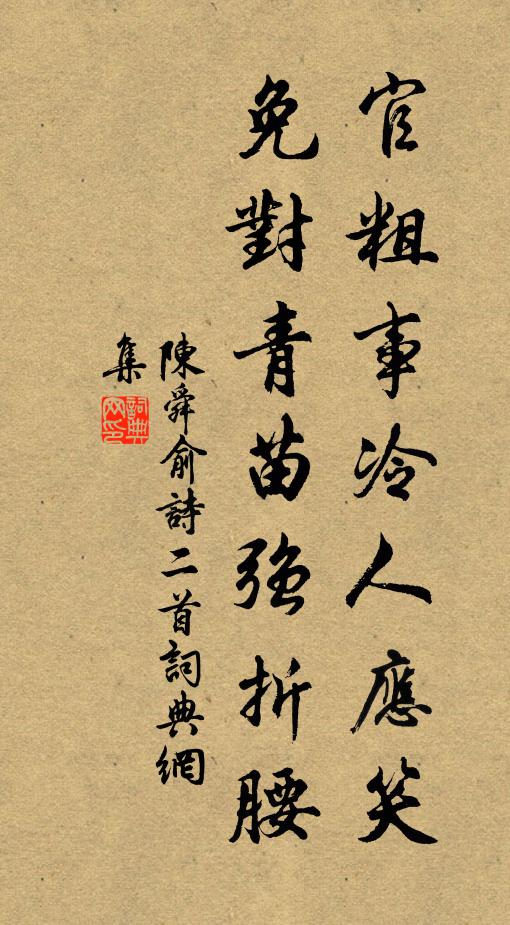 官粗事冷人應笑
免對青苗強折腰
陳舜俞詩二首詞典網
集
詞典
网印